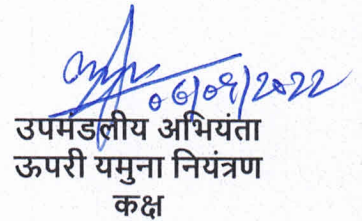 06/09/2022
उपमंडलीय अभियंता
ऊपरी यमुना नियंत्रण
कक्ष